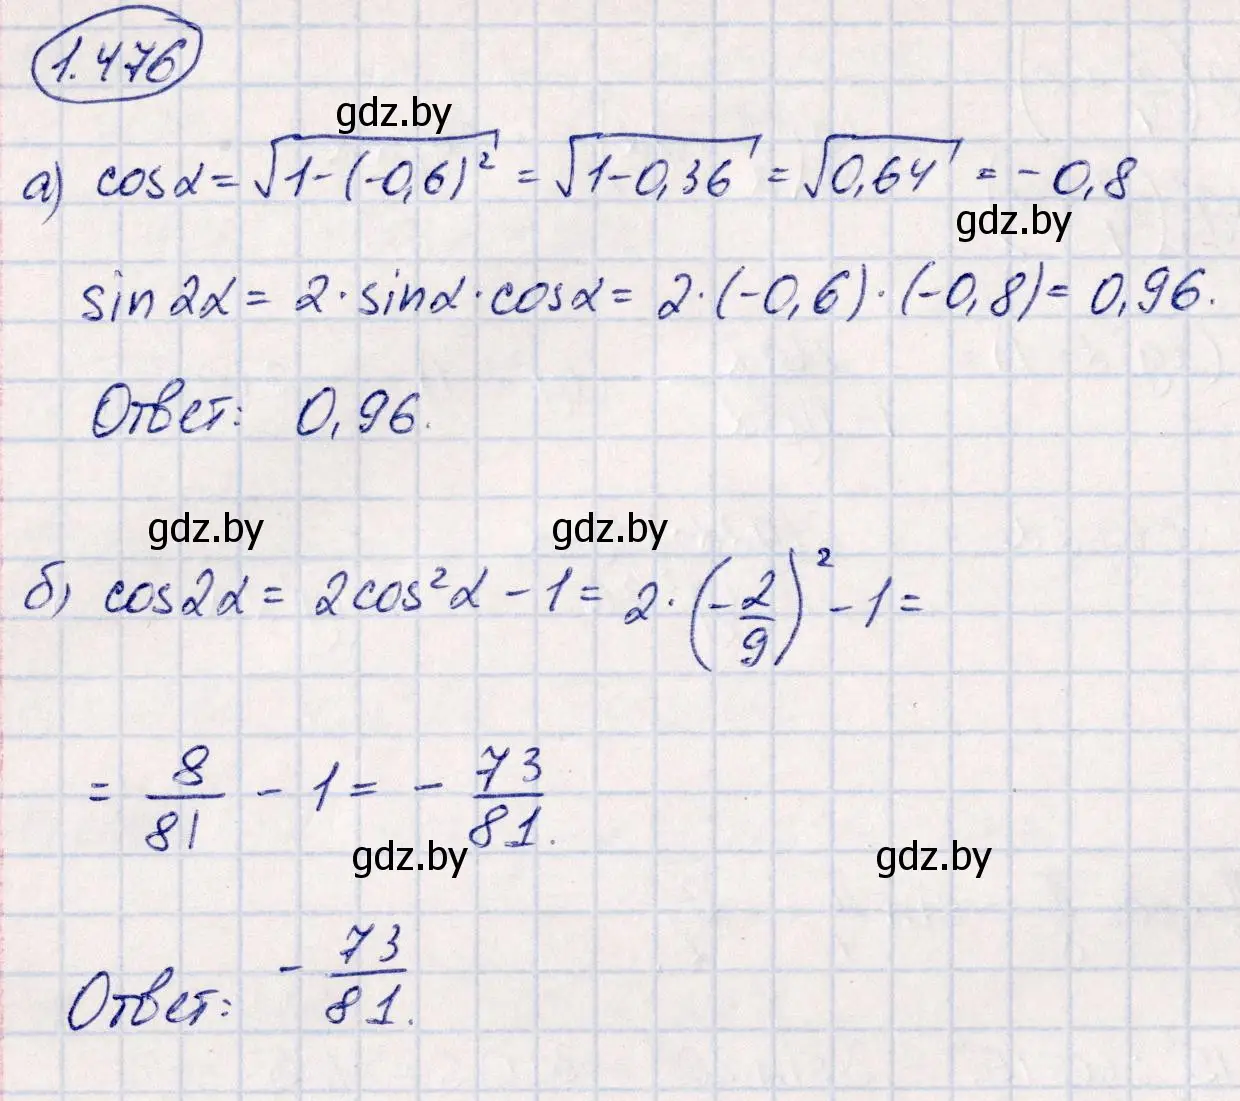 1.476
gdz.by
а) cosα = √(1-(-0,6)²) = √(1-0,36) = √(0,64) = -0,8
gdz.by
sin2α = 2·sinα·cosα = 2·(-0,6)·(-0,8) = 0,96.
Ответ: 0,96.
gdz.by gdz.by
б) cos2α = 2cos²α - 1 = 2·(-2/9)² - 1 =
= 8/81 - 1 = - 73/81.
gdz.by gdz.by
Ответ: - 73/81.